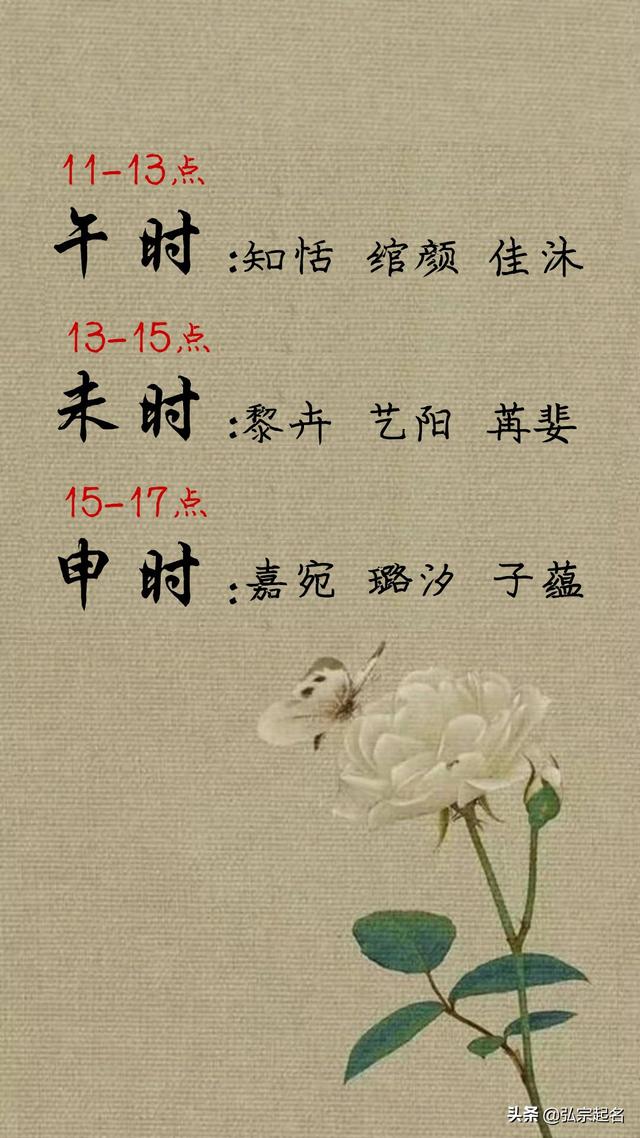 11-13点
午时:知恬 绾颜 佳沐
13-15点
未时:黎卉 艺阳 苒婓
15-17点
申时:嘉宛 璐汐 子蕴
头条 @弘宗起名